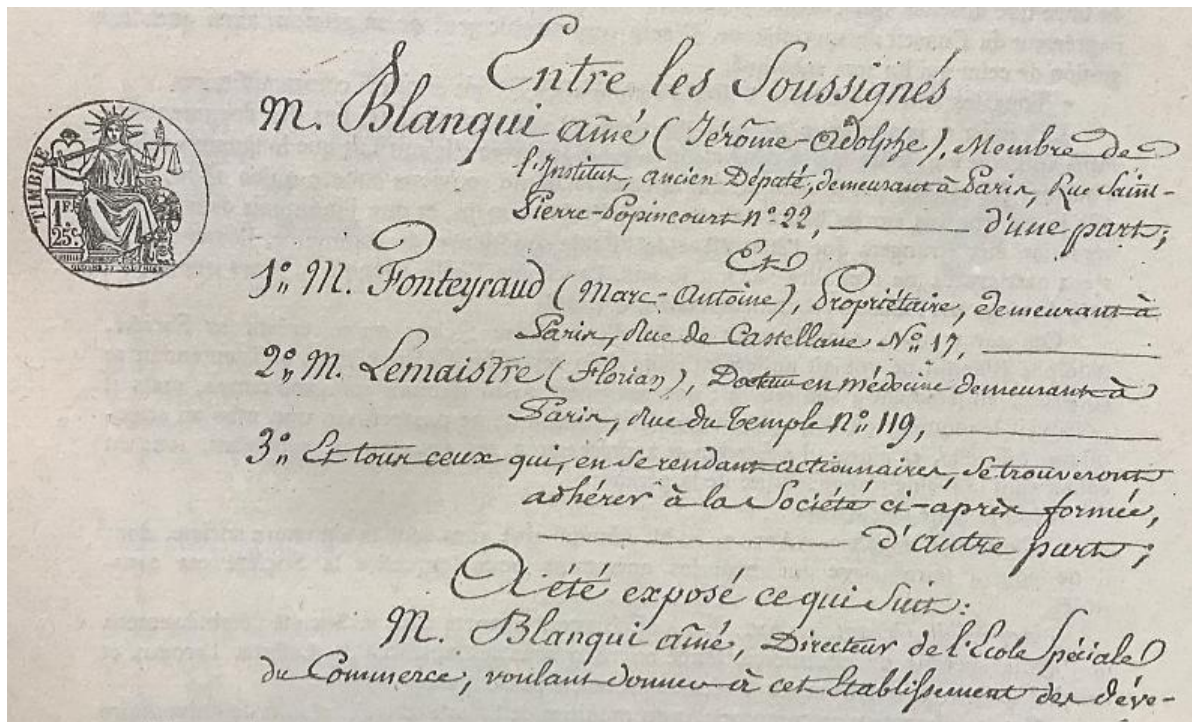 Entre les Soussignés
M. Blanqui aîné (Jérôme-Adolphe), Membre de
l'Institut, ancien Député, demeurant à Paris, Rue Saint-
Pierre-Popincourt n.º 22, d'une part;
Et
1.º M. Fonteyraud (Marc-Antoine), Propriétaire, demeurant à
Paris, Rue de Castellane N.º 17,
2.º M. Lemaistre (Florian), Docteur en médecine demeurant à
Paris, Rue du Temple N.º 119,
3.º Et tous ceux qui, en se rendant actionnaires, se trouveront
adhérer à la Société ci-après formée,
d'autre part;
A été exposé ce qui suit:
M. Blanqui aîné, Directeur de l'École spéciale
du Commerce, voulant donner à cet Etablissement des déve-
TIMBRE
1 F.
25 c.